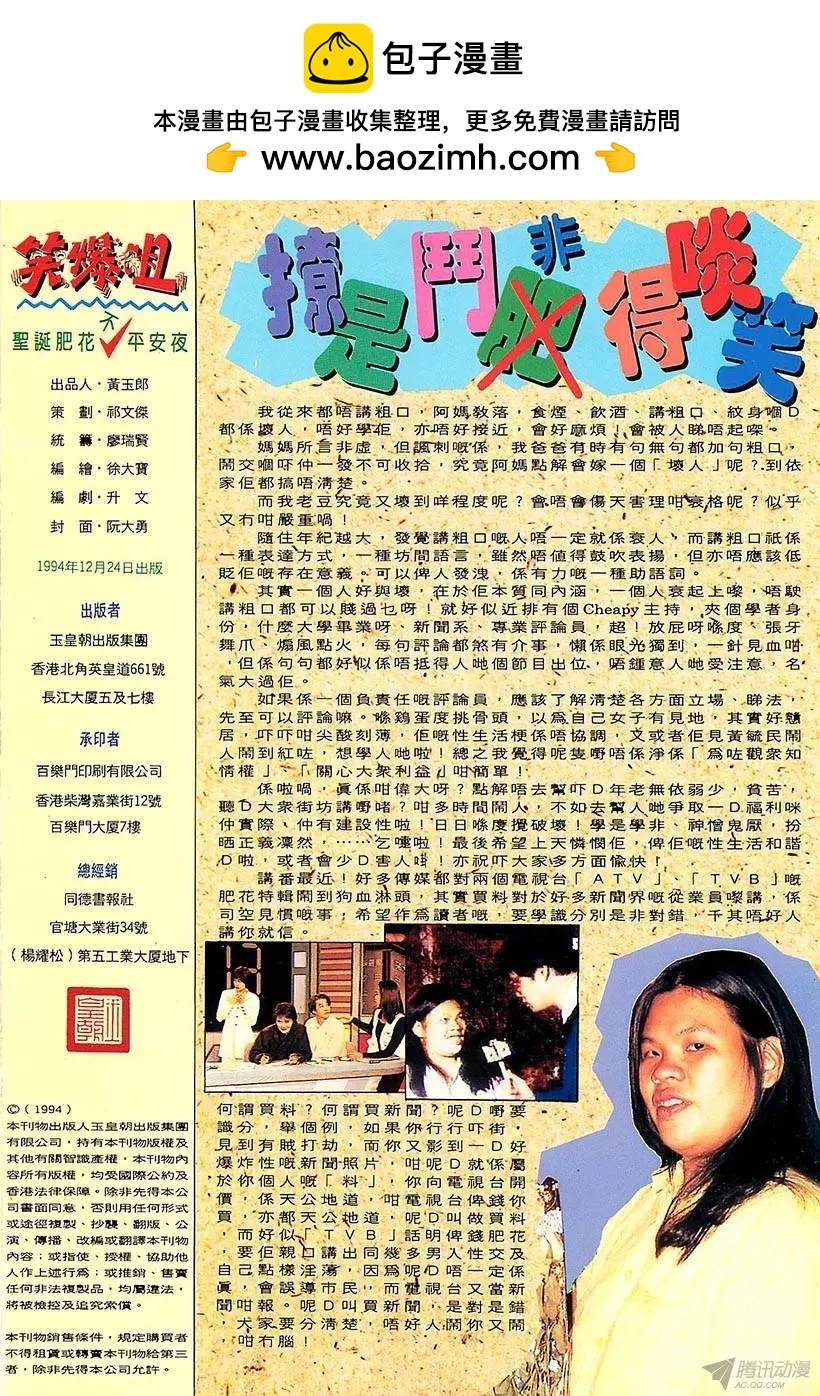 包子漫畫
本漫畫由包子漫畫收集整理，更多免費漫畫請訪問
👉 www.baozimh.com 👈
笑爆咀
聖誕肥花不平安夜
出品人・黃玉郎
策 劃・祁文傑
統 籌・廖瑞賢
編 繪・徐大寶
編 劇・升 文
封 面・阮大勇
1994年12月24日出版
出版者
玉皇朝出版集團
香港北角英皇道661號
長江大厦五及七樓
承印者
百樂門印刷有限公司
香港柴灣嘉業街12號
百樂門大厦7樓
總經銷
同德書報社
官塘大業街34號
（楊耀松）第五工業大厦地下
©（1994）
本刊物出版人玉皇朝出版集團
有限公司，持有本刊物版權及
其他有關智識產權，本刊物內
容所有版權，均受國際公約及
香港法律保障。除非先得本公
司書面同意，否則用任何形式
或途徑複製、抄襲、翻版、公
演、傳播、改編或翻譯本刊物
內容；或指使、授權、協助他
人作上述行為；或推銷、售賣
任何非法複製品，均屬違法，
將被檢控及追究索償。
本刊物銷售條件，規定購買者
不得租賃或轉賣本刊物給第三
者，除非先得本公司允許。
撩是鬥肥非得啖笑
我從來都唔講粗口，阿媽教落，食煙、飲酒、講粗口、紋身嗰D
都係壞人，唔好學佢，亦唔好接近，會好麻煩！會被人睇唔起㗎。
媽媽所言非虛，但諷刺嘅係，我爸爸有時有句無句都加句粗口，
鬧交嗰吓仲一發不可收拾，究竟阿媽點解會嫁一個「壞人」呢？到依
家佢都搞唔清楚。
而我老豆究竟又壞到咩程度呢？會唔會傷天害理咁衰格呢？似乎
又冇咁嚴重喎！
隨住年紀越大，發覺講粗口嘅人唔一定就係衰人，而講粗口祇係
一種表達方式，一種坊間語言，雖然唔值得鼓吹表揚，但亦唔應該低
貶佢嘅存在意義。可以俾人發洩，係有力嘅一種助語詞。
其實一個人好與壞，在於佢本質同內涵，一個人衰起上嚟，唔駛
講粗口都可以賤過乜呀！就好似近排有個Cheapy主持，夾個學者身
份，什麼大學畢業呀、新聞系、專業評論員，超！放屁呀喺度、張牙
舞爪、煽風點火，每句評論都煞有介事，懶係眼光獨到，一針見血咁
，但係句句都好似係唔抵得人哋個節目出位，唔鍾意人哋受注意，名
氣大過佢。
如果係一個負責任嘅評論員，應該了解清楚各方面立場、睇法，
先至可以評論嘛。喺鷄蛋度挑骨頭，以為自己女子有見地，其實好戇
居，吓吓咁尖酸刻薄，佢嘅性生活梗係唔協調，又或者佢見黃毓民鬧
人鬧到紅咗，想學人哋啦！總之我覺得呢隻嘢唔係淨係「為咗觀衆知
情權」、「關心大衆利益」咁簡單！
係啦喎，眞係咁偉大呀？點解唔去幫吓D年老無依弱少，貧苦，
聽D大衆街坊講嘢啫？咁多時間鬧人，不如去幫人哋爭取一D福利咪
仲實際、仲有建設性啦！日日喺度攪破壞！學是學非、神憎鬼厭，扮
晒正義凜然，……乞嗤啦！最後希望上天憐憫佢，俾佢嘅性生活和諧
D啦，或者會少D害人咁！亦祝吓大家多方面愉快！
講番最近！好多傳媒都對兩個電視台「ATV」、「TVB」嘅
肥花特輯鬧到狗血淋頭，其實買料對於好多新聞界嘅從業員嚟講，係
司空見慣嘅事；希望作為讀者嘅，要學識分別是非對錯，千其唔好人
講你就信。
何謂買料？何謂買新聞？呢D嘢要
識分，舉個例，如果你行行吓街，
見到有賊打劫，而你又影到一D好
爆炸性嘅新聞照片，咁呢D就係屬
於你個人嘅「料」，你向電視台開
價，係天公地道，咁電視台俾錢你
買，亦都天公地道，呢D叫做買料
，而好似「TVB」話明俾錢肥花
，要佢親口講出同幾多男人性交及
自己點樣淫蕩，因為呢D唔一定係
眞，會誤導市民，而電視台又當新
聞咁報。呢D叫買新聞，是對是錯
，大家要分清楚，唔好人鬧你又鬧
，咁冇腦！
腾讯动漫
AC.QQ.COM